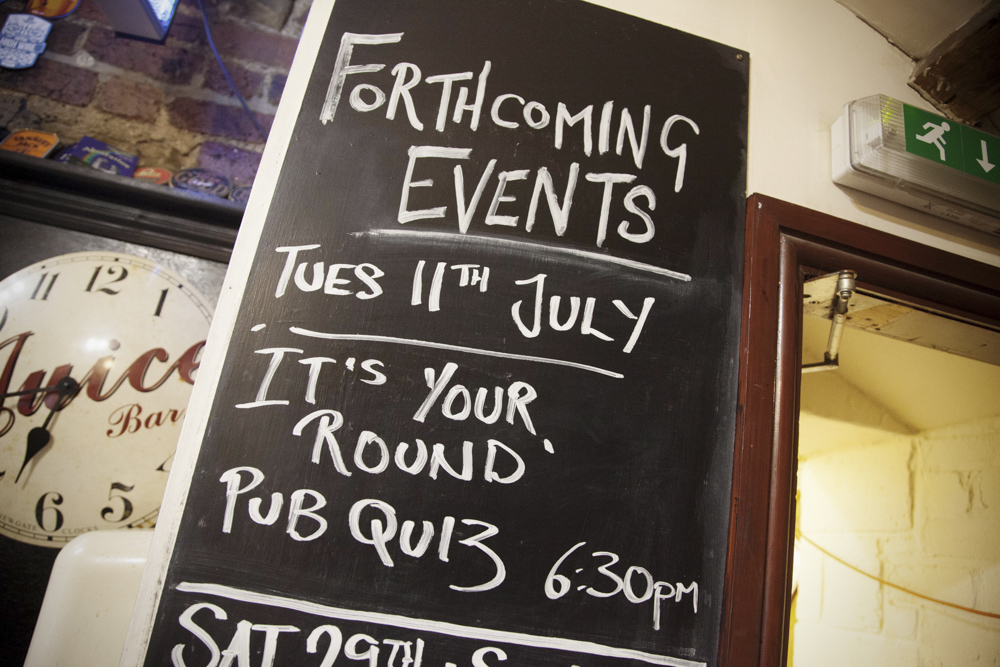 FORTHCOMING
EVENTS
TUES 11TH JULY
'IT'S YOUR
ROUND'
PUB QUIZ 6:30PM
SAT 29TH
Juice
Bar
11 12 1
6 5